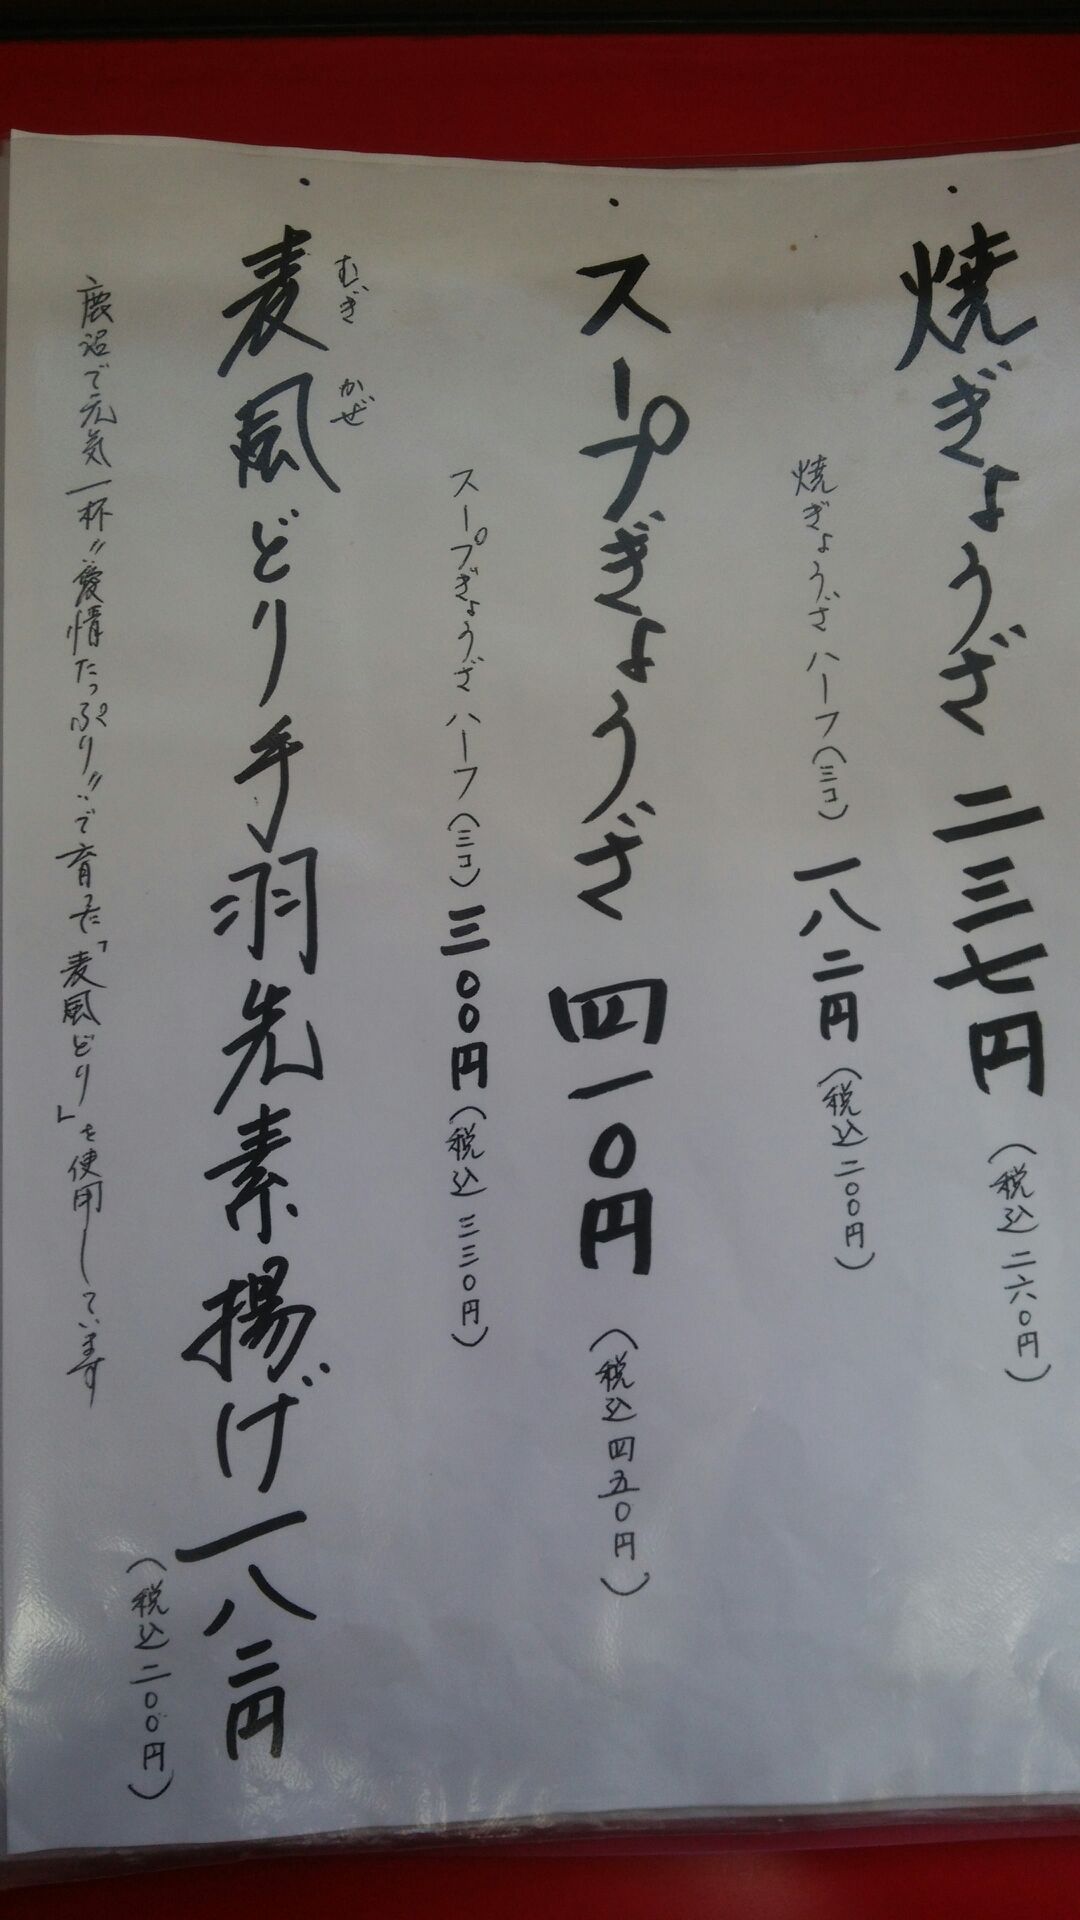 ・焼ぎょうざ 二三七円 (税込二六〇円)
焼ぎょうざ ハーフ(三コ) 一八二円 (税込二〇〇円)
・スープぎょうざ 四一〇円 (税込四五〇円)
スープぎょうざ ハーフ(三コ) 三〇〇円 (税込三三〇円)
むぎ かぜ
・麦風どり手羽先素揚げ 一八二円
(税込二〇〇円)
鹿沼で元気一杯〃愛情たっぷり〃で育った「麦風どり」を使用しています